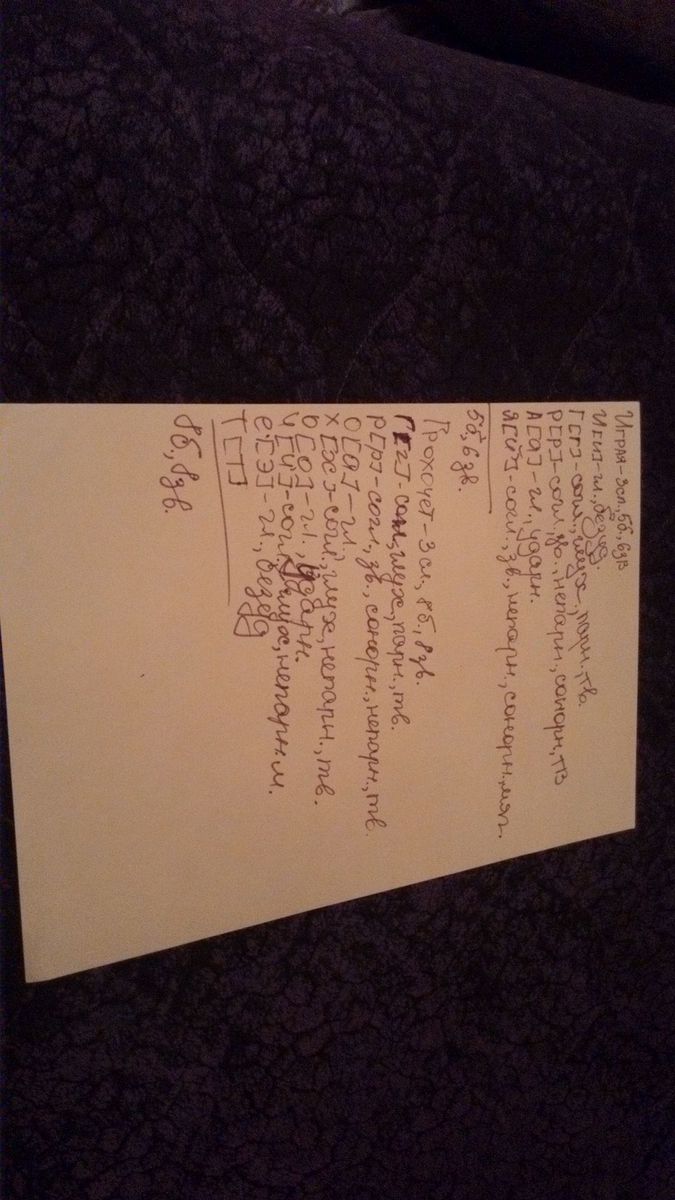 Играя-3сл,5б,6зв
И[и]-гл.,безуд.
Г[г]-согл.,глух.,парн.,тв.
Р[р]-согл.,зв.,непарн.,сонорн,тв
А[а]-гл.,ударн.
Я[й']-согл.,зв.,непарн.,сонорн.,мяг.
5б,6зв.
Прохочет-3сл,8б,8зв.
П[г]-согл,глух,парн.,тв.
Р[р]-согл.,зв.,сонорн.,непарн.,тв.
О[а]-гл.
Х[х]-согл,глух,непарн.,тв.
О[о]-гл.,ударн.
Ч[ч]-согл,глух,непарн.м.
е[э]-гл.,безуд
Т[т]
8б,8зв.